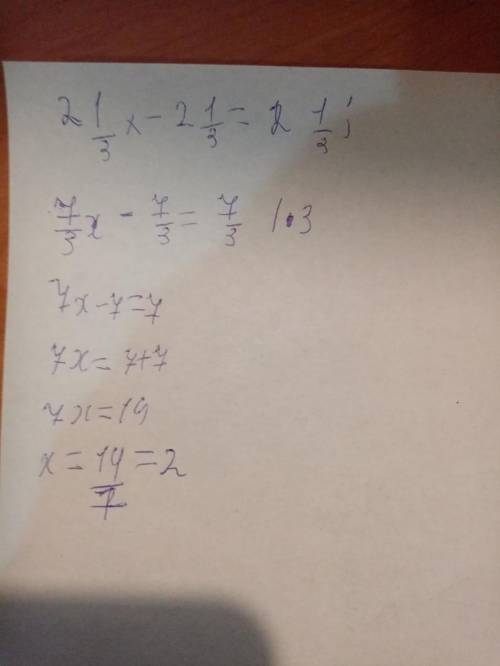 2 1/3 x - 2 1/3 = 2 1/3;
7/3 x - 7/3 = 7/3 |·3
7x-7=7
7x=7+7
7x=14
x=14/7=2